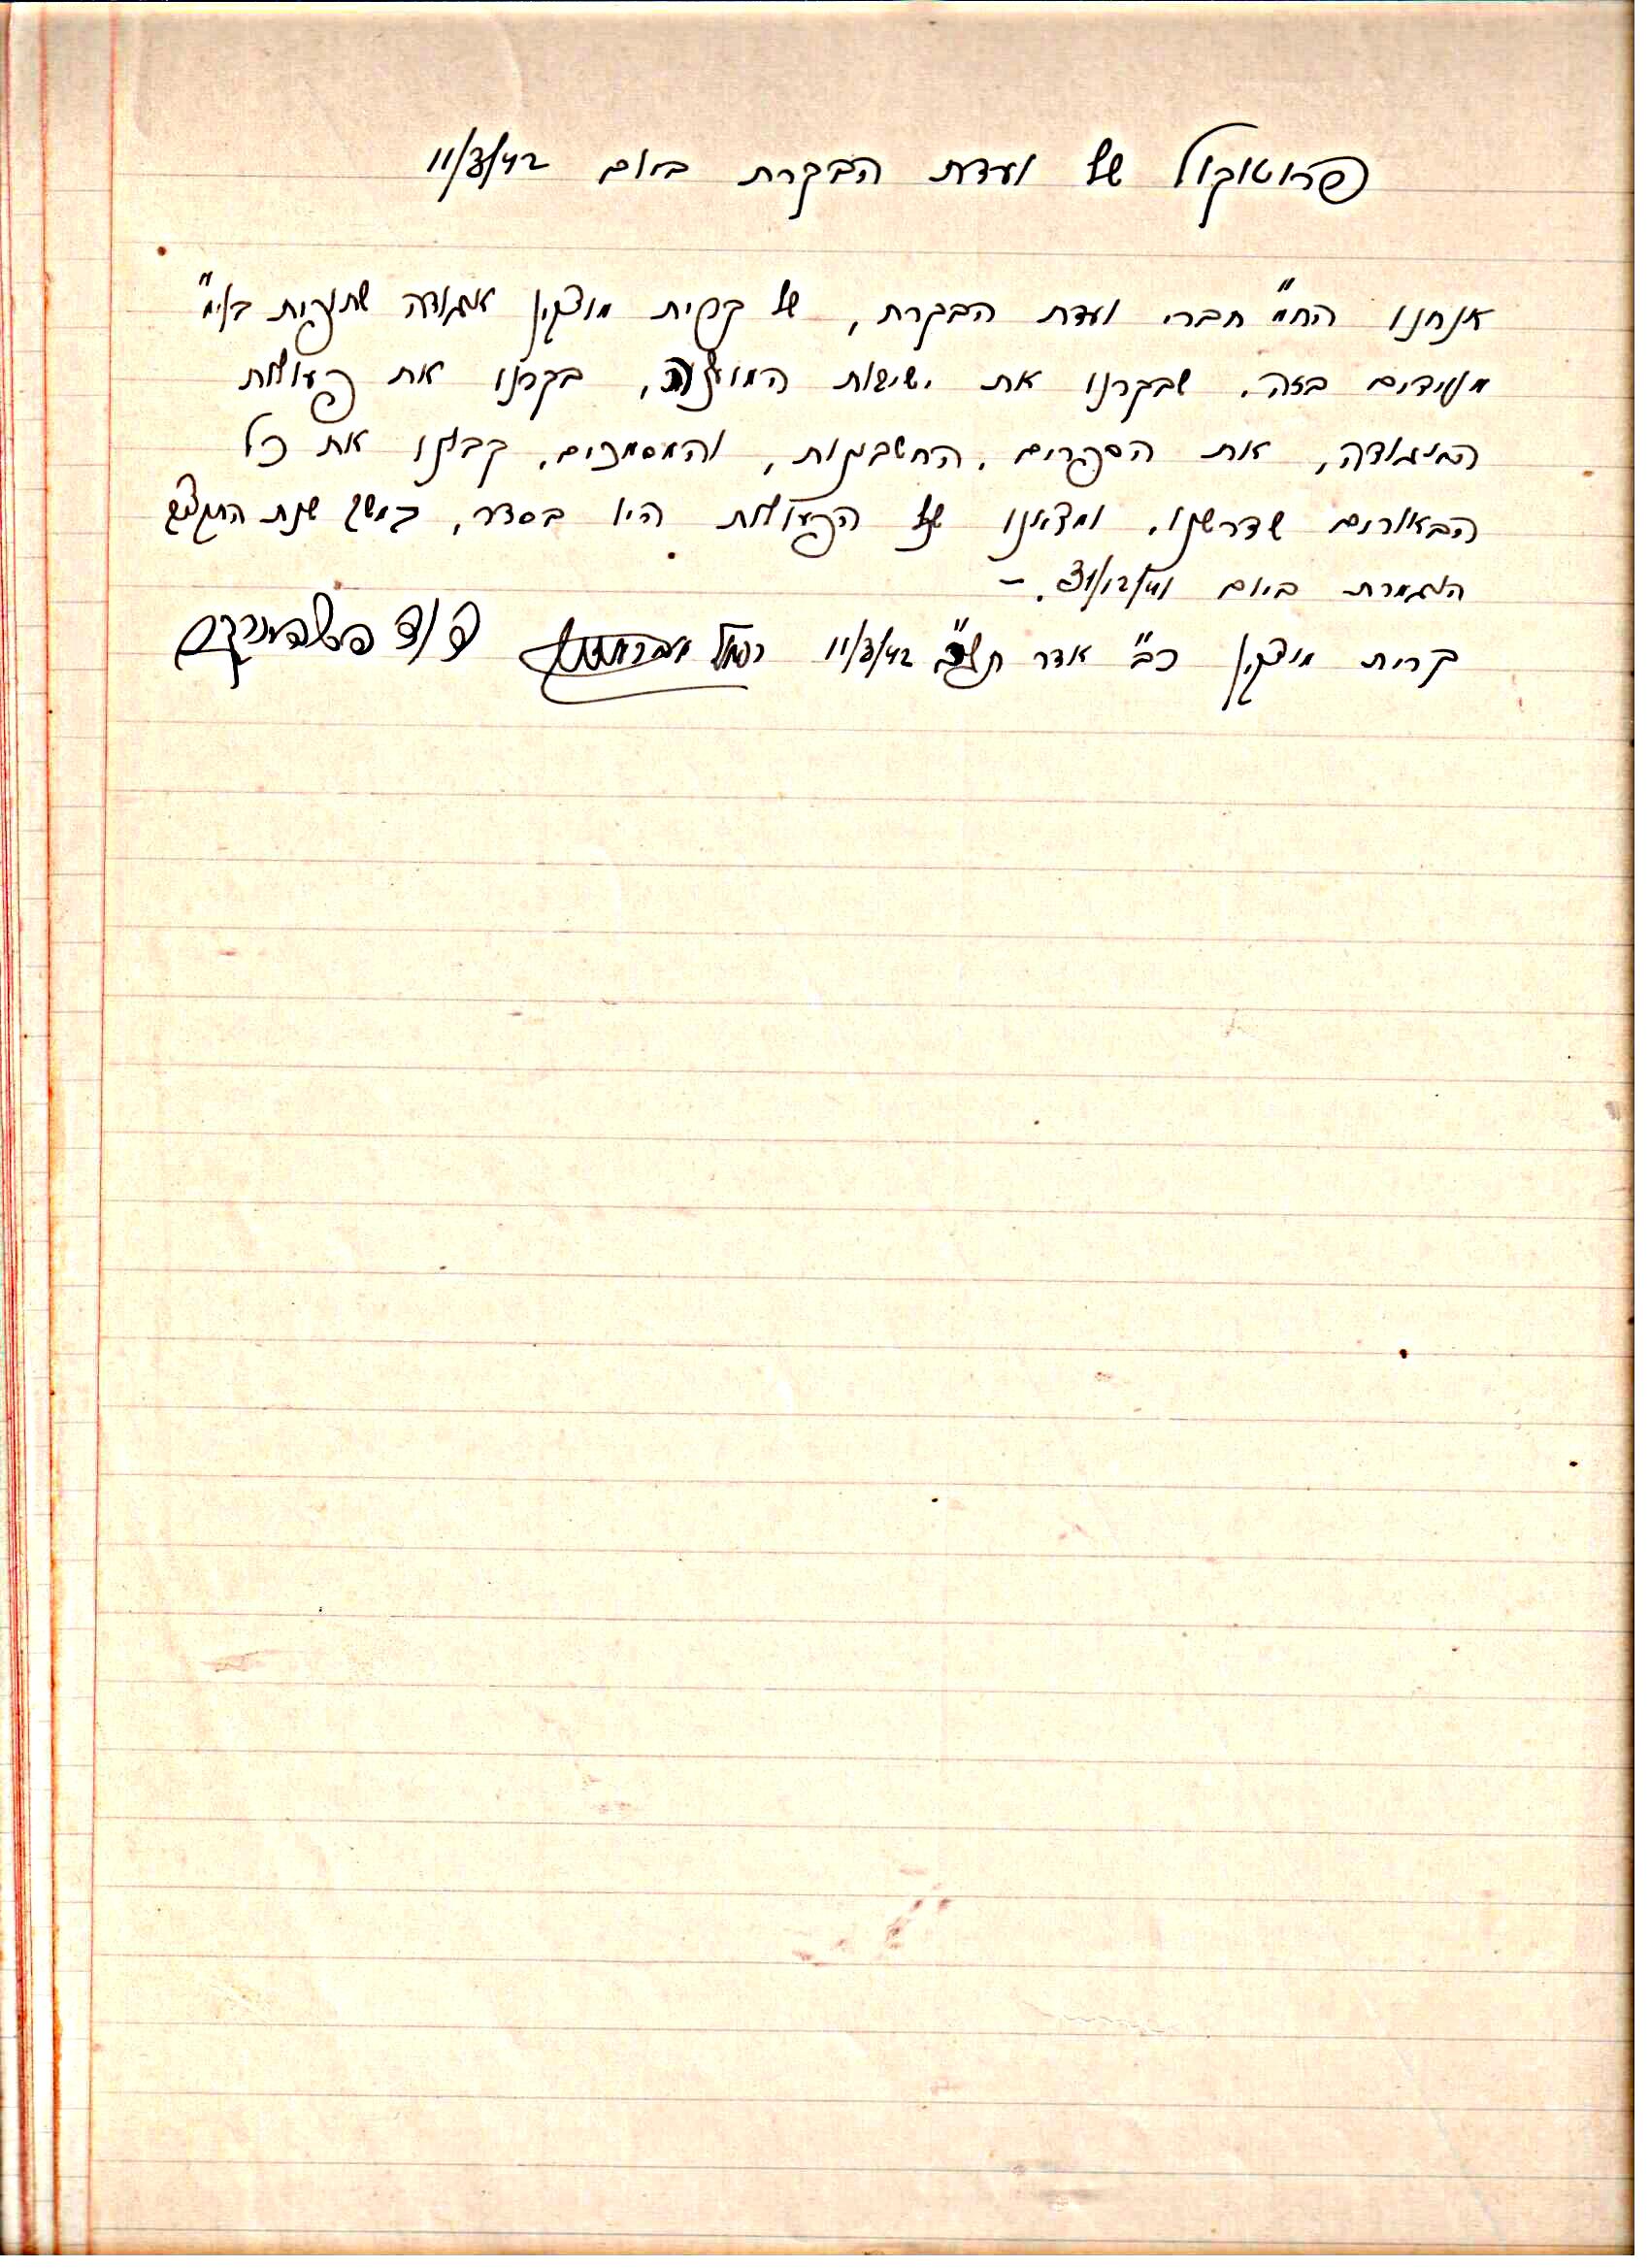 פרוטוקול של ועדת הבקרת ביום 11/3/42
אנחנו הח"מ חברי ועדת הבקרת, של קרית מוצקין אגודה שתופית בע"מ
מעידים בזה. שבקרנו את ישיבות המועצה, בקרנו את פעולות
האגודה, את הספרים, החשבונות, והמסמכים, קבלנו את כל
הבאורים שדרשנו. ומצאנו שכל הפעולות היו בסדר, במשך שנת התקציב
הנגמרת ביום 31/12/41. –
קרית מוצקין כ"ב אדר תש"ב 11/3/42